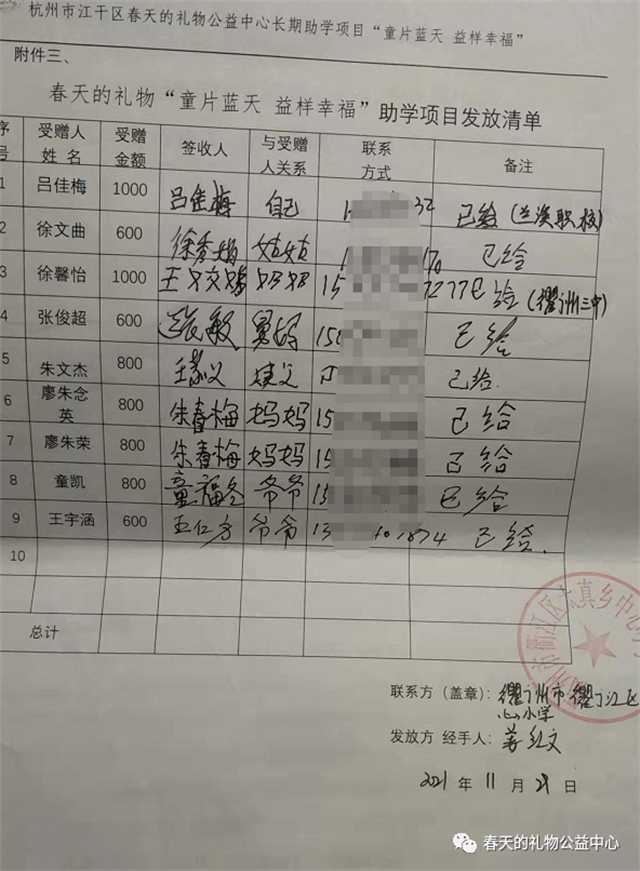 杭州市江干区春天的礼物公益中心长期助学项目“童片蓝天 益样幸福”
附件三、
春天的礼物“童片蓝天 益样幸福”助学项目发放清单
序号 受赠人姓名 受赠金额 签收人 与受赠人关系 联系方式 备注
1 吕佳梅 1000 吕佳梅 自己 32 已给（兰溪职校）
2 徐文曲 600 姑姑 已给
3 徐馨怡 1000 妈妈 15 7277 已给（衢州三中）
4 张俊超 600 舅妈 15 已给
5 朱文杰 800 已给
6 廖朱念英 800 朱春梅 妈妈 15 已给
7 廖朱荣 800 朱春梅 妈妈 15 已给
8 童凯 800 童福冬 爷爷 已给
9 王宇涵 600 王仁方 爷爷 13 已给.
10
总计
联系方（盖章）：衢州市衢江区
心小学
发放方 经手人：姜红文
2021 年 11 月 29 日
春天的礼物公益中心